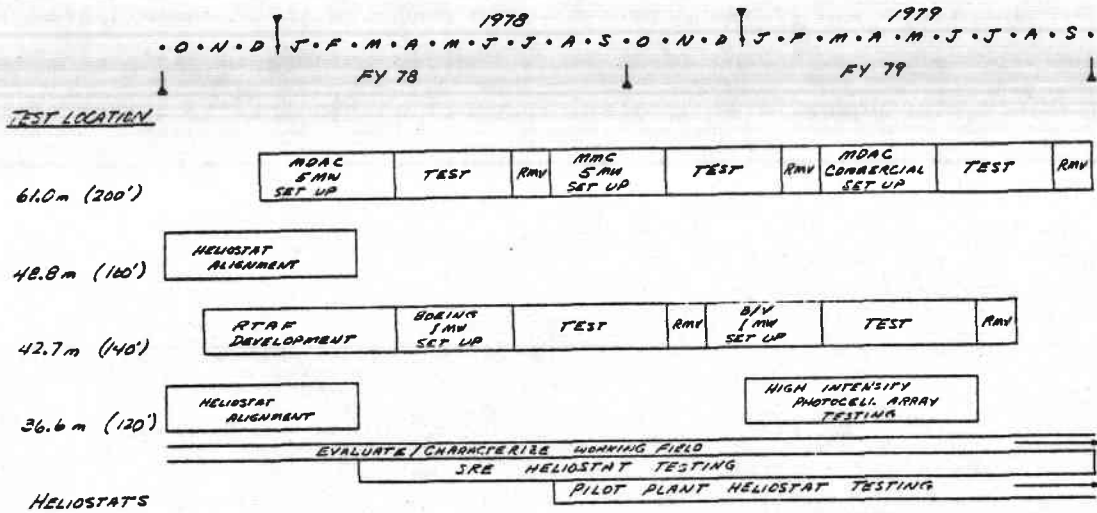 1978 1979
· O · N · D J · F · M · A · M · J · J · A · S · O · N · D J · F · M · A · M · J · J · A · S ·
FY 78 FY 79
TEST LOCATION
61.0 m (200')
MDAC
5 MW
SET UP
TEST
RMV
MMC
5 MW
SET UP
TEST
RMV
MDAC
COMMERCIAL
SET UP
TEST
RMV
48.8 m (160')
HELIOSTAT
ALIGNMENT
42.7 m (140')
RTAF
DEVELOPMENT
BOEING
1 MW
SET UP
TEST
RMV
B/V
1 MW
SET UP
TEST
RMV
36.6 m (120')
HELIOSTAT
ALIGNMENT
HIGH INTENSITY
PHOTOCELL ARRAY
TESTING
HELIOSTATS
EVALUATE/CHARACTERIZE WORKING FIELD
SRE HELIOSTAT TESTING
PILOT PLANT HELIOSTAT TESTING